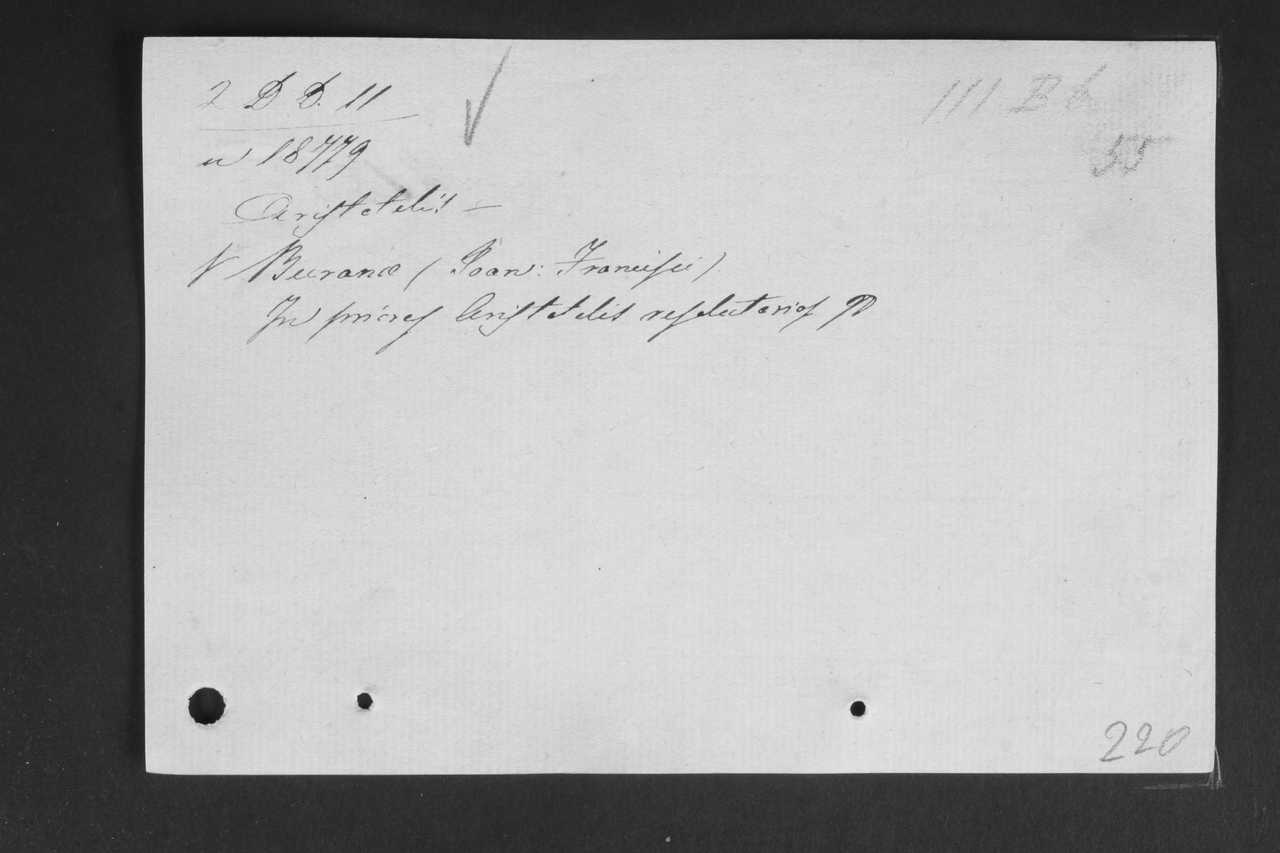 2 D D. 11
111 B b
55
n 18779
Aristotelis —
V Buranæ (Joan: Francisci)
In priores Aristotelis resolutorios
220